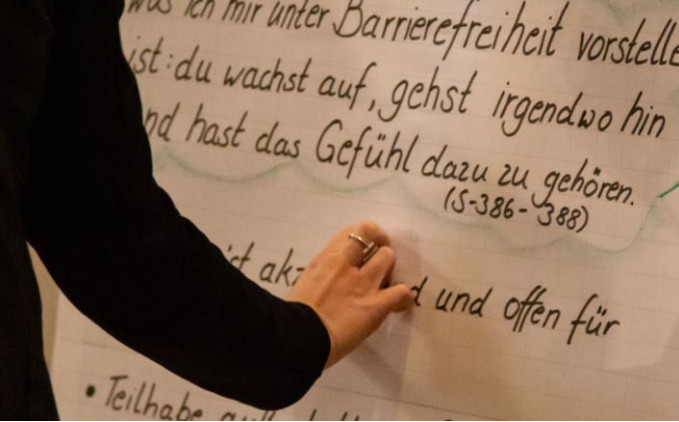 was ich mir unter Barrierefreiheit vorstelle
ist: du wachst auf, gehst irgendwo hin
nd hast das Gefühl dazu zu gehören.
(S-386-388)
ist akz d und offen für
• Teilhabe